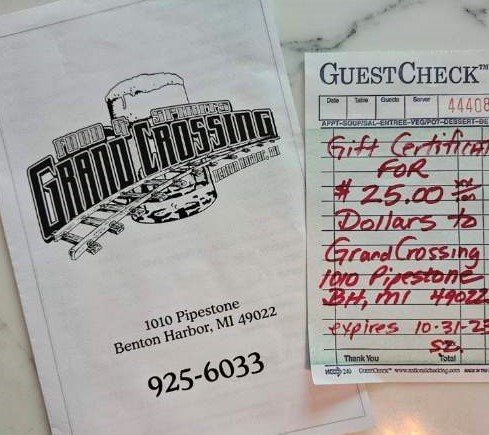 FOOD 'N' SPIRITS
GRAND CROSSING
BENTON HARBOR, MI
1010 Pipestone
Benton Harbor, MI 49022
925-6033
GUESTCHECK™
Date Table Guests Server
44408
APPT-SOUP/SAL-ENTREE-VEG/POT-DESSERT-BE
Gift Certificat
FOR
$ 25.00 xx/100
Dollars to
Grand Crossing
1010 Pipestone
BH, MI 49022
expires 10-31-23
Thank You Total
GUESTCHECK™ www.nationalchecking.com